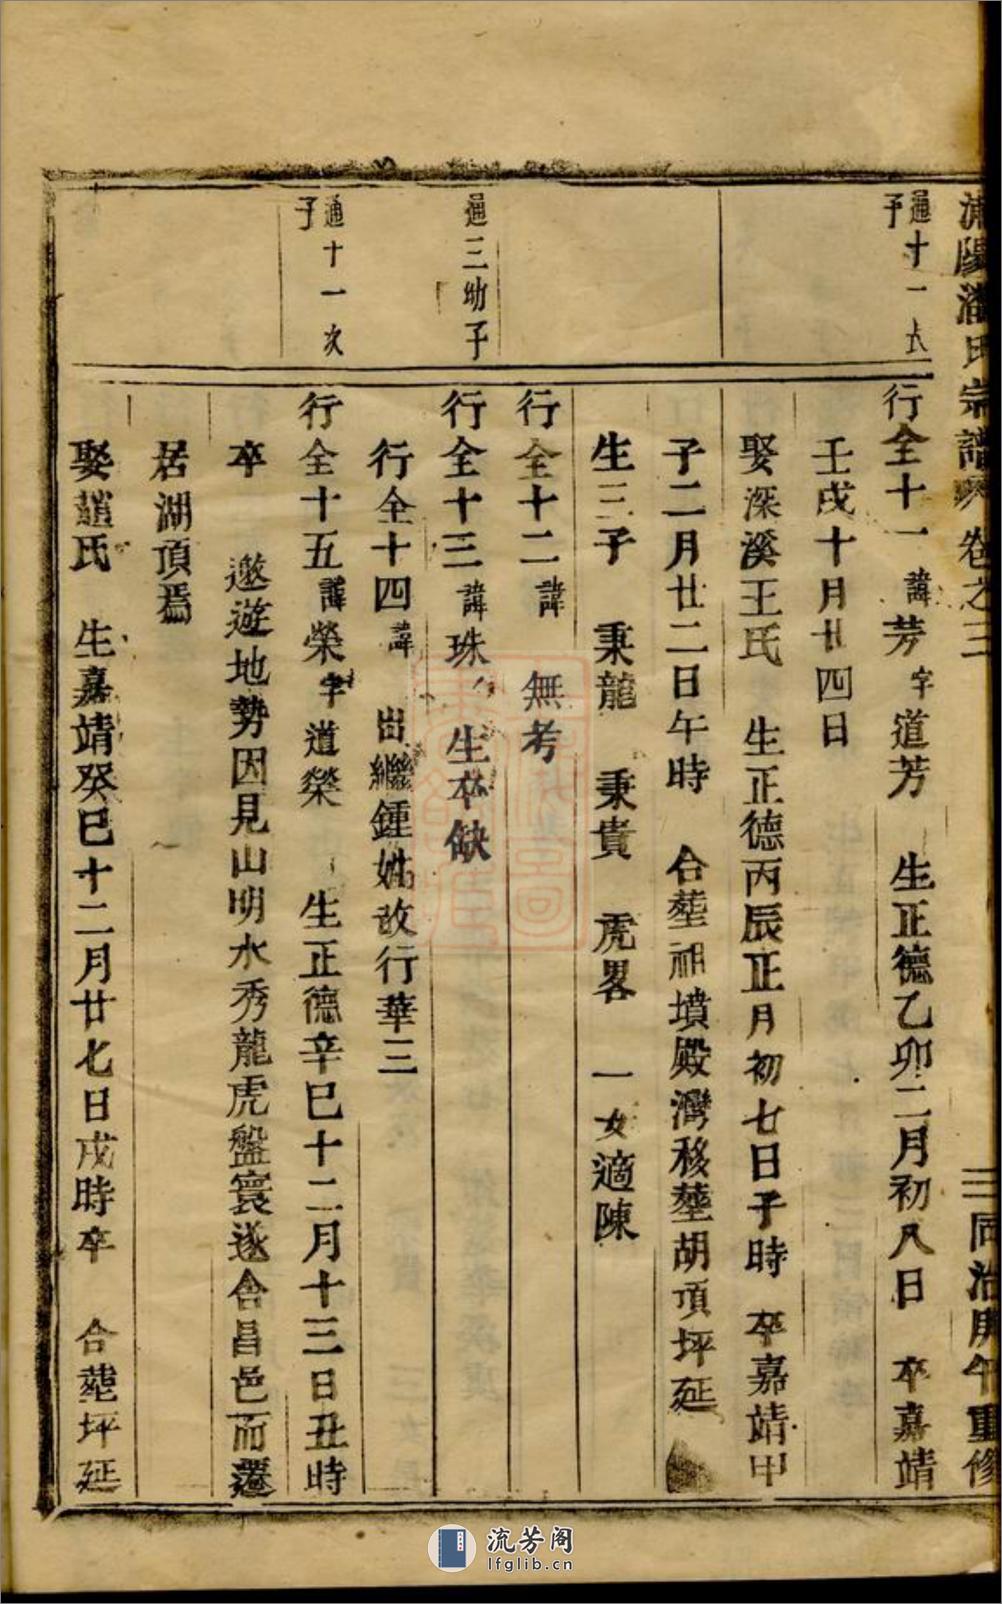 氏宗譜 卷之三 三 同治庚午重修
通十一長
子
行全十一 諱芳 字道芳 生正德乙卯二月初八日 卒嘉靖
壬戌十月廿四日
娶深溪王氏 生正德丙辰正月初七日子時 卒嘉靖甲
子二月廿二日午時 合塟祖墳殿灣移塟胡項坪延
生三子 秉龍 秉貴 虎畧 一女適陳
行全十二 諱 無考
通三幼子
行全十三 諱珠 生卒缺
行全十四 諱 出繼鍾姓故行華三
通十一次
子
行全十五 諱榮 字道榮 生正德辛巳十二月十三日丑時
卒 遨遊地勢因見山明水秀龍虎盤寰遂舍昌邑而遷
居湖項焉
娶趙氏 生嘉靖癸巳十二月廿七日戌時卒 合葬坪延
流芳阁
lfglib.cn